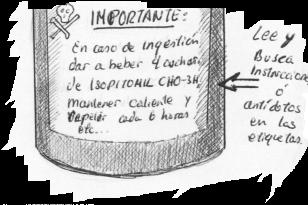 IMPORTANTE:
En caso de ingestión
dar a beber 4 cuchar.
de ISOPITOMIL CHO-3H,
mantener caliente y
repetir cada 6 horas
etc...
Lee y
Busca
Instruccione
ó
antídotos
en las
etiquetas.